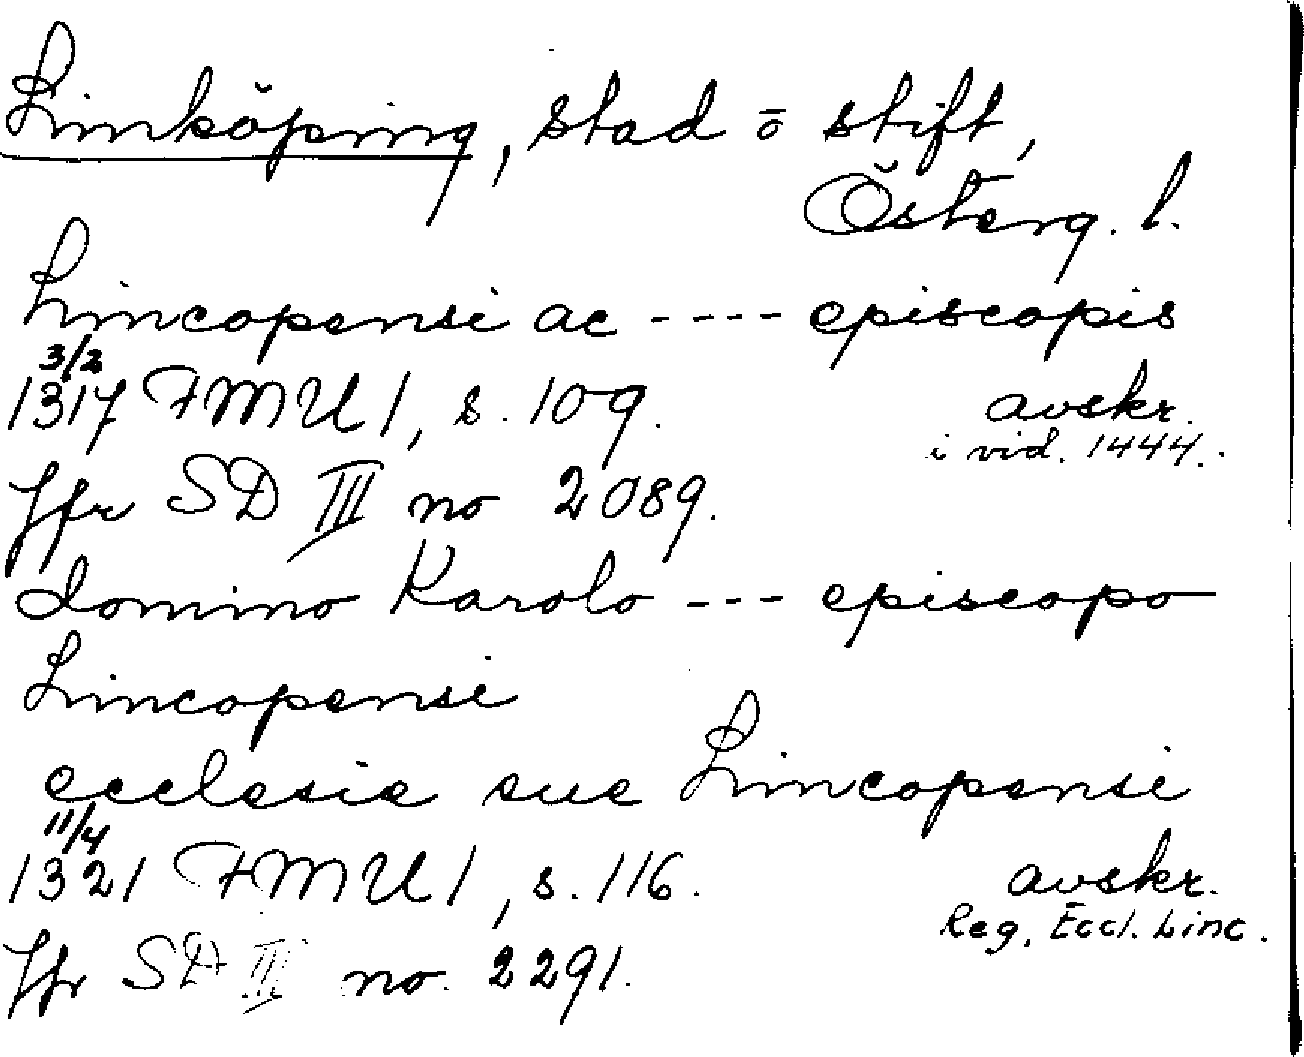 Linköping, stad o stift,
Österg. l.
Lincopensi ac ---- episcopis
3/2
1317 FMU 1, s. 109. avskr.
i vid. 1444.
Jfr SD III no 2089.
domino Karolo --- episcopo
Lincopensi
ecclesie sue Lincopensi
11/4
1321 FMU 1, s. 116. avskr.
Reg. Eccl. Linc.
Jfr SD III no. 2291.